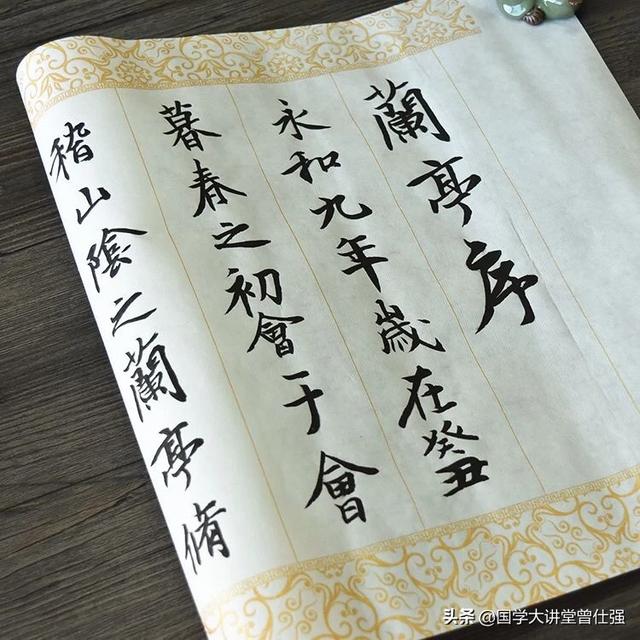 蘭亭序
永和九年歲在癸丑
暮春之初會于會
稽山陰之蘭亭脩
头条 @国学大讲堂曾仕强